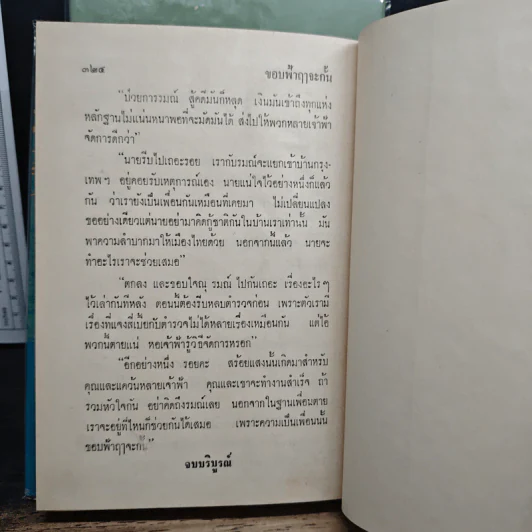 ๓๒๕ ขอบฟ้าฤๅจะกั้น
“ป่วยการรมณ์ สู้คดีมันก็หลุด เงินมันเข้าถึงทุกแห่ง
หลักฐานไม่แน่นหนาพอที่จะมัดมันได้ ส่งไปให้พวกหลายเจ้าฟ้า
จัดการดีกว่า”
“นายรีบไปเถอะรอย เรากับรมณ์จะแยกเข้าบ้านกรุง-
เทพฯ อยู่คอยรับเหตุการณ์เอง นายแน่ใจไว้อย่างหนึ่งก็แล้ว
กัน ว่าเรายังเป็นเพื่อนกันเหมือนที่เคยมา ไม่เปลี่ยนแปลง
ขออย่างเดียวแต่นายอย่ามาคิดกู้ชาติกันในบ้านเราเท่านั้น มัน
พาความลำบากมาให้เมืองไทยด้วย นอกจากนั้นแล้ว นายจะ
ทำอะไรเราจะช่วยเสมอ”
“ตกลง และขอบใจณุ รมณ์ ไปกันเถอะ เรื่องอะไรๆ
ไว้เล่ากันทีหลัง ตอนนี้ต้องรีบหลบตำรวจก่อน เพราะตัวเรามี
เรื่องที่แจงสี่เบี้ยกับตำรวจไม่ได้หลายเรื่องเหมือนกัน แต่ไอ้
พวกนี้ตายแน่ หอเจ้าฟ้ารู้วิธีจัดการหรอก”
“อีกอย่างหนึ่ง รอยคะ สร้อยแสงนั้นเกิดมาสำหรับ
คุณและแคว้นหลายเจ้าฟ้า คุณและเขาจะทำงานสำเร็จ ถ้า
รวมหัวใจกัน อย่าคิดถึงรมณ์เลย นอกจากในฐานเพื่อนตาย
เราจะอยู่ที่ไหนก็ช่วยกันได้เสมอ เพราะความเป็นเพื่อนนั้น
ขอบฟ้าฤๅจะกั้น”
จบบริบูรณ์